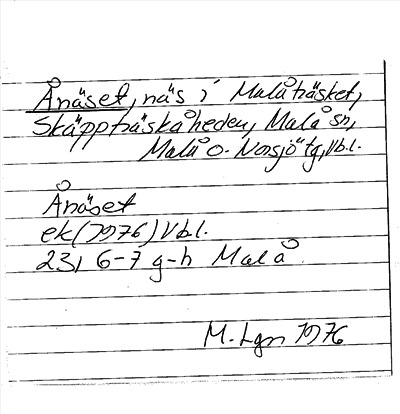 Ånäset, näs i Malåträsket,
Skäppträskåheden, Malå sn,
Malå o. Norsjö tg, Vbl.
Ånäset
ek (1976) Vbl.
23I 6-7 g-h Malå
M. Lgn 1976